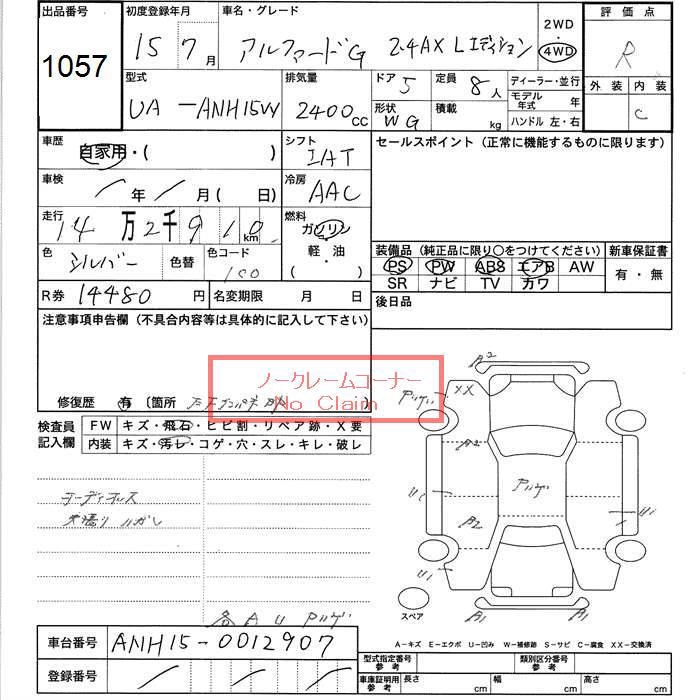 出品番号
1057
初度登録年月
15 7月
車名・グレード
アルファードG 2.4AX Lエディション
2WD
・
4WD
評価点
R
外装
内装
C
型式
UA-ANH15W
排気量
2400cc
ドア 5
定員 8人
形状 WG
積載 kg
ディーラー・並行
モデル年式 年
ハンドル 左・右
車歴
自家用・( )
シフト
IAT
セールスポイント (正常に機能するものに限ります)
車検
年 月( 日)
冷房
AAC
走行
14万2千910km
燃料
ガソリン
軽・油
・( )
色
シルバー
色替
色コード
1C0
装備品 (純正品に限り○をつけてください)
PS PW ABS エアB AW
SR ナビ TV カワ
新車保証書
有・無
R券 14480円
名変期限 月 日
後日品
注意事項申告欄 (不具合内容等は具体的に記入して下さい)
ノークレームコーナー
No Claim
修復歴 有 〔箇所
検査員記入欄
FW キズ・飛石・ヒビ割・リペア跡・X要
内装 キズ・汚レ・コゲ・穴・スレ・キレ・破レ
ハガレ
各 A U アリゲ
A2
XX
A2
アリゲ
A2
A1
A1
スペア
A-キズ E-エクボ U-凹み W-補修跡 S-サビ C-腐食 XX-交換済
車台番号
ANH15-0012907
登録番号
型式指定番号 参考
類別区分番号 参考
車庫証明用 参考
長さ cm
幅 cm
高さ cm